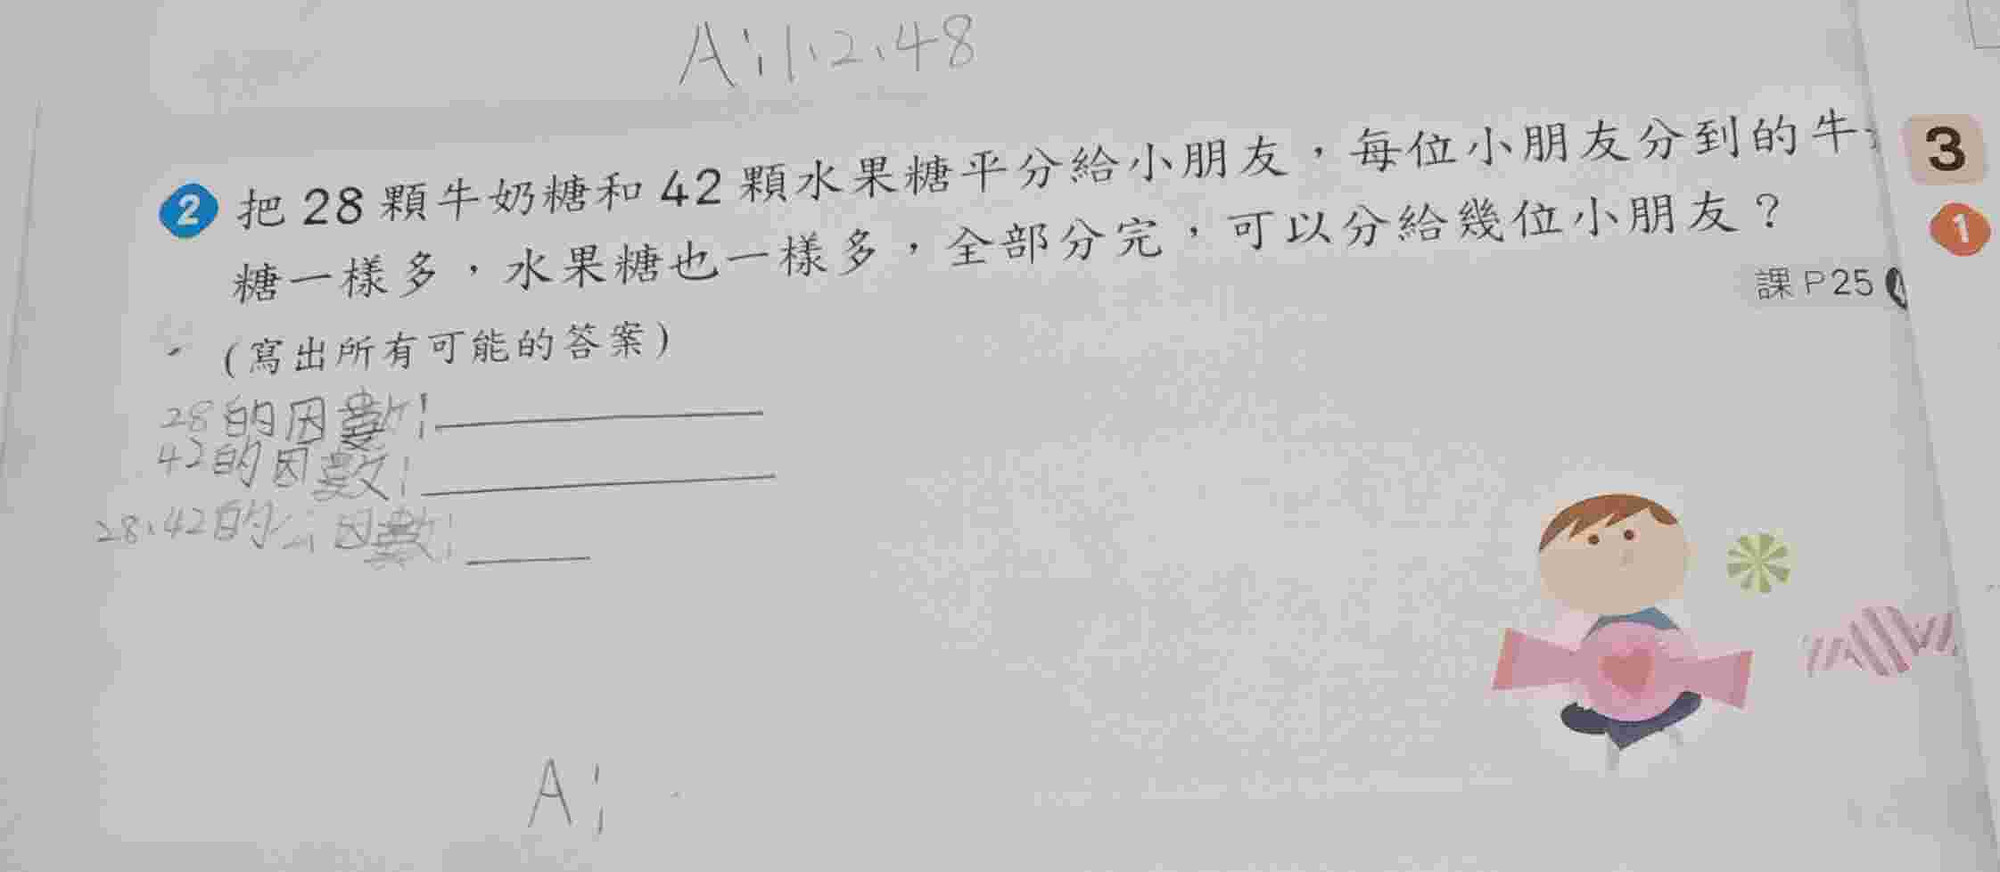 A:1、2、48
2 把28顆牛奶糖和42顆水果糖平分給小朋友，每位小朋友分到的牛
糖一樣多，水果糖也一樣多，全部分完，可以分給幾位小朋友？
課P25
(寫出所有可能的答案)
28的因數:
42的因數:
28、42的公因數:
A:
3
1